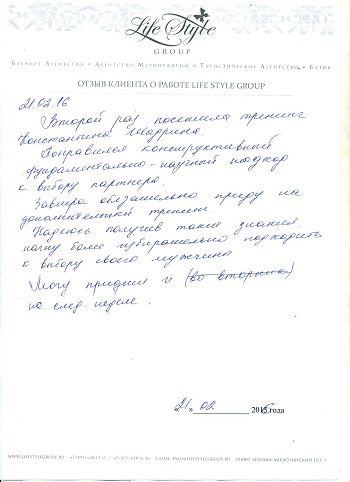 Life Style
GROUP
Брачное Агентство • Агентство Мероприятий • Туристическое Агентство • Бутик
ОТЗЫВ КЛИЕНТА О РАБОТЕ LIFE STYLE GROUP
21.02.16
Второй раз посетила тренинг
Константина Шадрина.
Понравился конструктивный
фундаментально-научный подход
к выбору партнера.
Завтра обязательно приду на
дополнительный тренинг
Надеюсь получив такие знания,
начну более избирательно подходить
к выбору своего мужчины
Могу придти и (во вторник)
на след. неделе.
21 » 02 2016 года
WWW.LIFESTYLEGROUP.RU